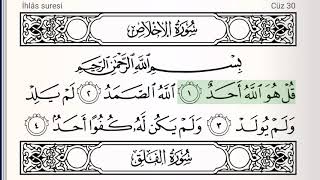 İhlâs suresi Cüz 30
سُورَةُ الْاِخْلَاصِ
بِسْمِ اللّٰهِ الرَّحْمٰنِ الرَّحِيمِ
قُلْ هُوَ اللّٰهُ اَحَدٌ ﴿١﴾ اَللّٰهُ الصَّمَدُ ﴿٢﴾ لَمْ يَلِدْ
وَلَمْ يُولَدْ ﴿٣﴾ وَلَمْ يَكُنْ لَهُ كُفُوًا اَحَدٌ ﴿٤﴾
سُورَةُ الْفَلَقِ